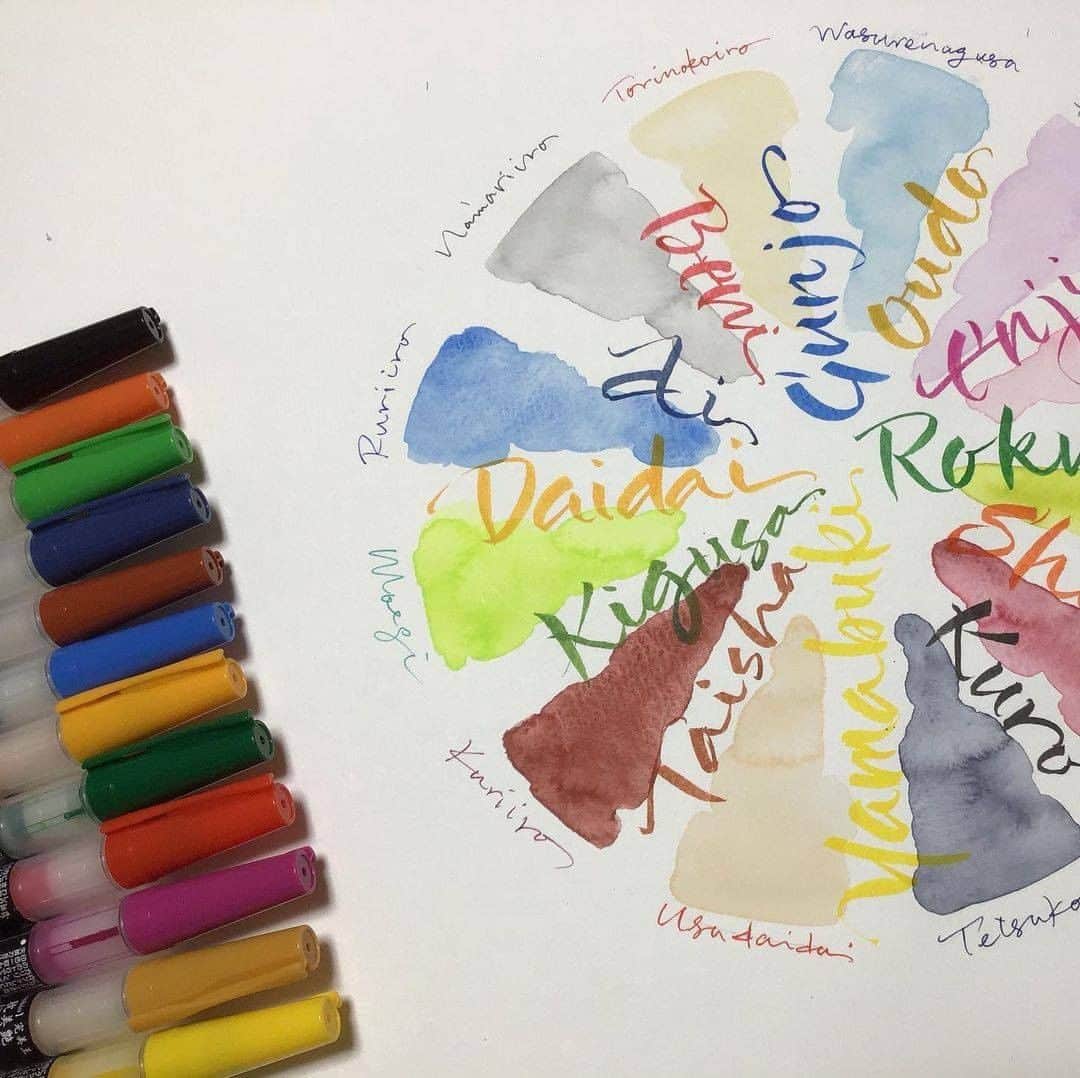 Wasurenagusa
Torinokoiro
Namariiro
Ruriiro
Moegi
Kuriiro
Usudaidai
Tetsuko
Beni
Gunjo
Oudo
enji
Ai
Daidai
Kigusa
Taisha
Yamabuki
Kuro
Roku
Sh